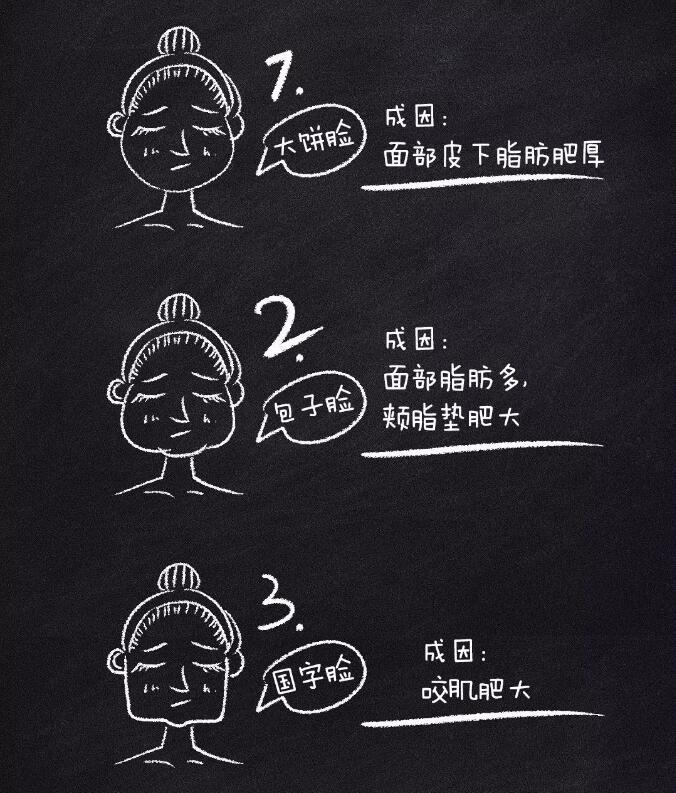 1.
大饼脸
成因：
面部皮下脂肪肥厚
2.
包子脸
成因：
面部脂肪多，
颊脂垫肥大
3.
国字脸
成因：
咬肌肥大